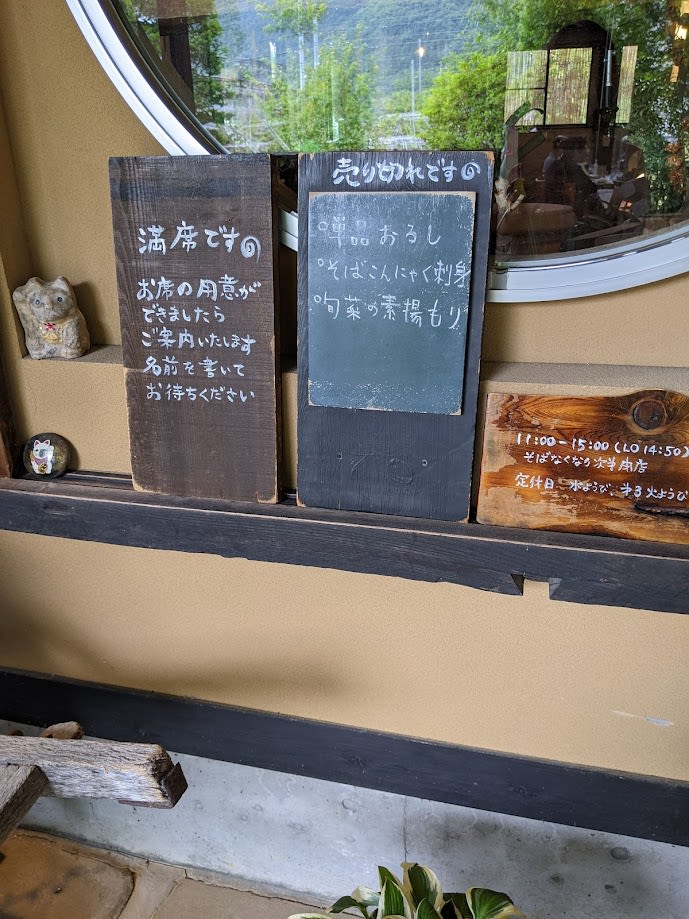 満席です
お席の用意が
できましたら
ご案内いたします
名前を書いて
お待ちください
売り切れです
単品おろし
そばこんにゃく刺身
旬菜の素揚もり
11:00-15:00(LO 14:50)
そばなくなり次第閉店
定休日 水ようび、第3火ようび